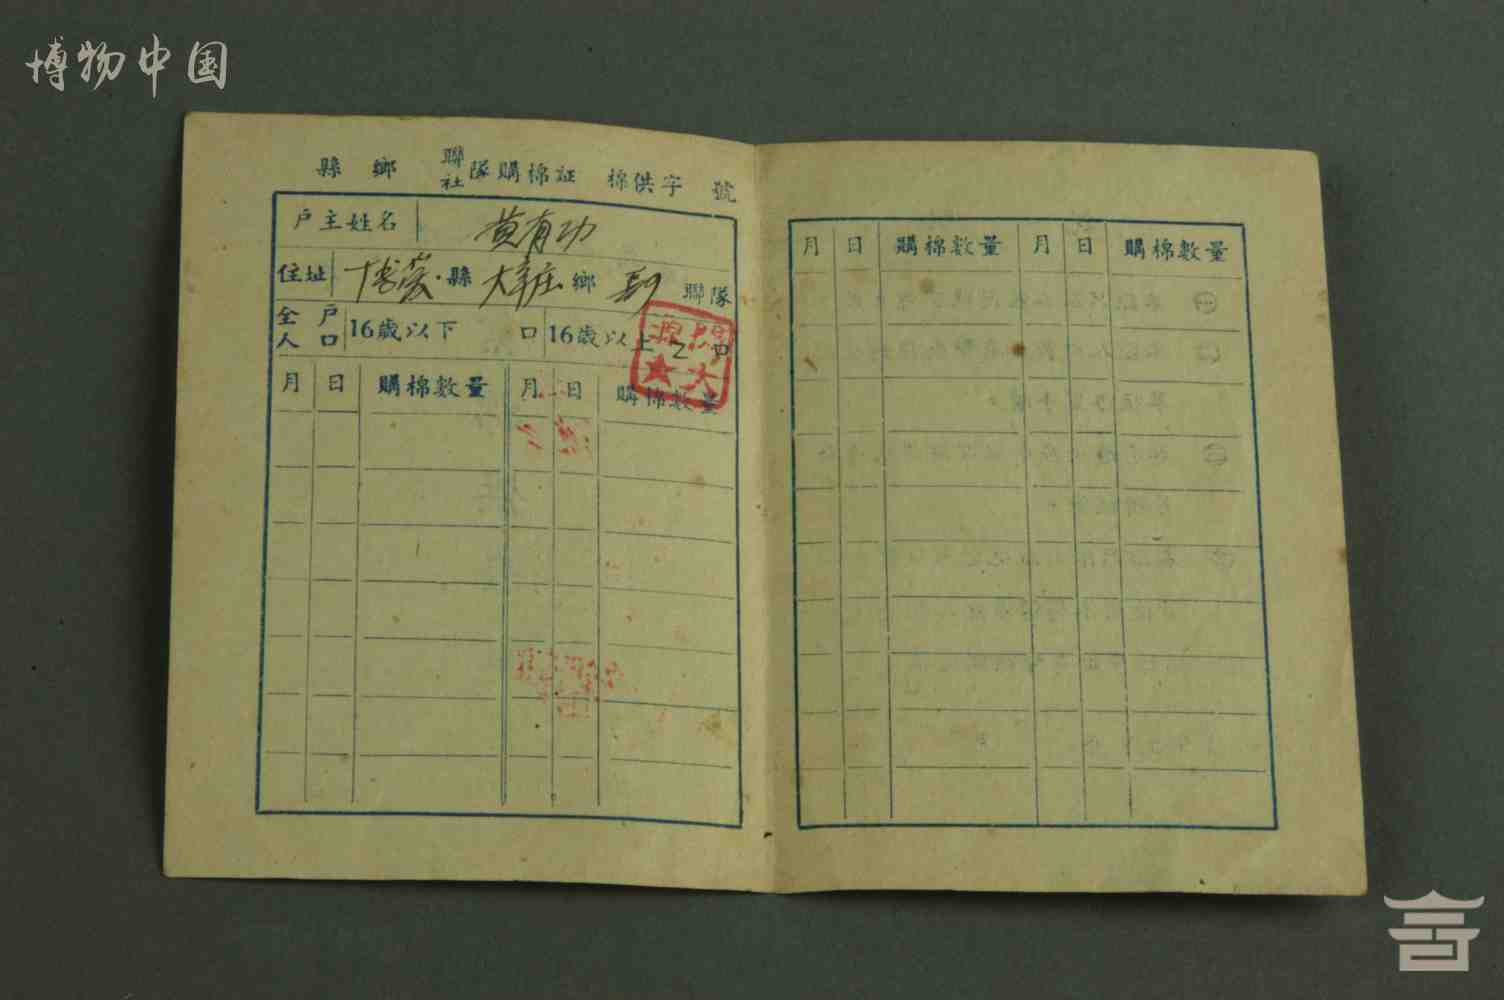 博物中国
縣 鄉 聯社隊購棉証 棉供字 號
戶主姓名 黄有功
住址 博爱縣 大辛庄鄉 聯隊
全戶人口 16歲以下 口 16歲以上 2 口
月 日 購棉數量 月 日 購棉數量
月 日 購棉數量 月 日 購棉數量